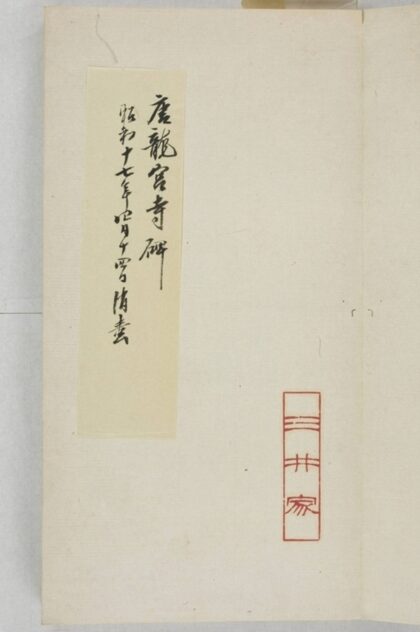 唐龍宮寺碑
昭和十七年四月十四日消
三井家